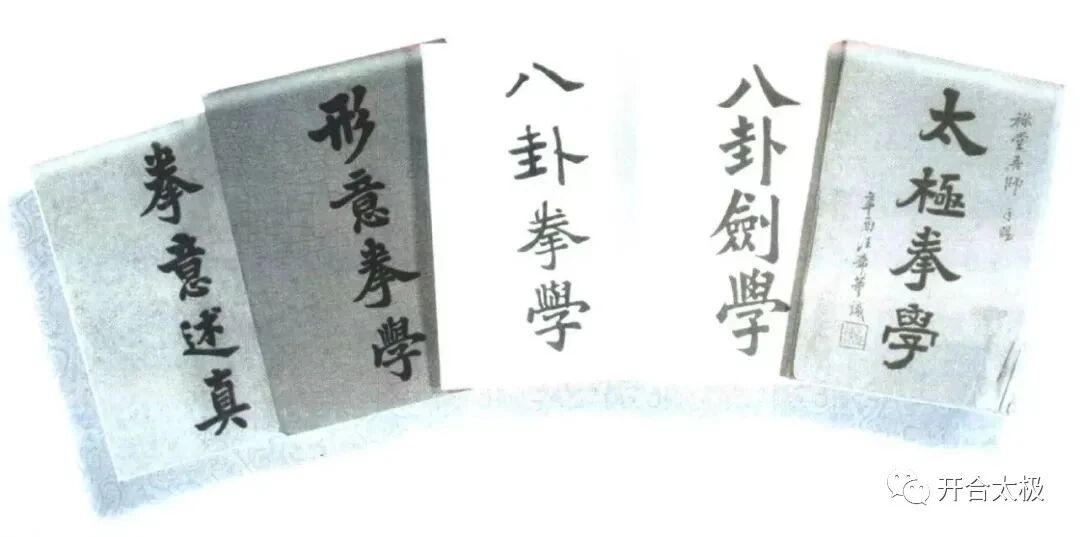 拳意述真
形意拳學
八卦拳學
八卦劍學
太極拳學
辛酉
开合太极